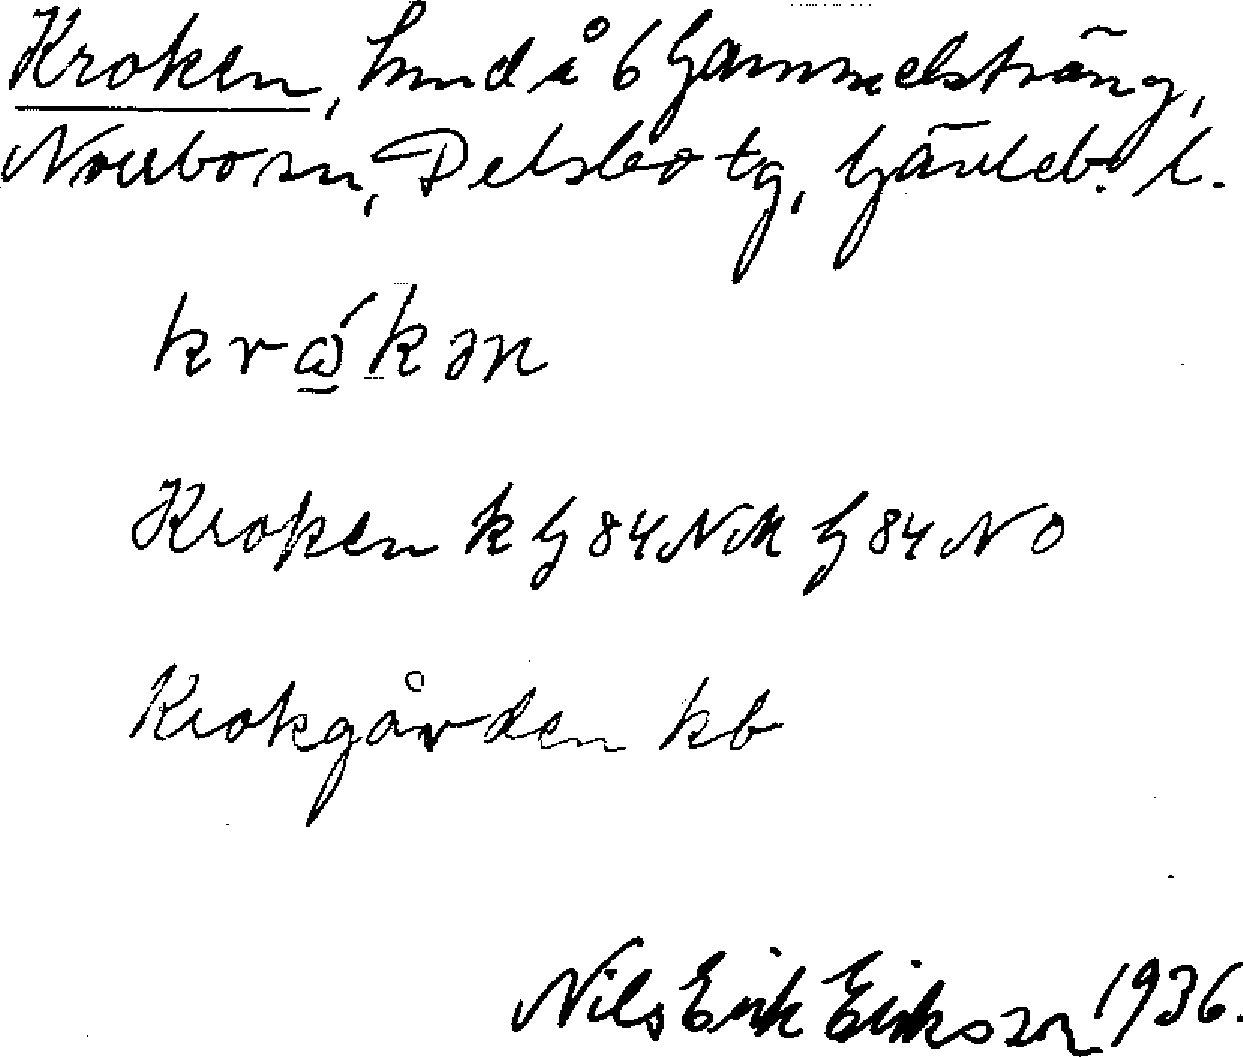 Kroken, hmd å 6 Gammelsträng,
Norrbo sn, Delsbo tg, Gävleb. l.
krώ̲kən
Kroken k G 84 NM G 84 NO
Krokgården kb
Nils Erik Eriksson 1936.